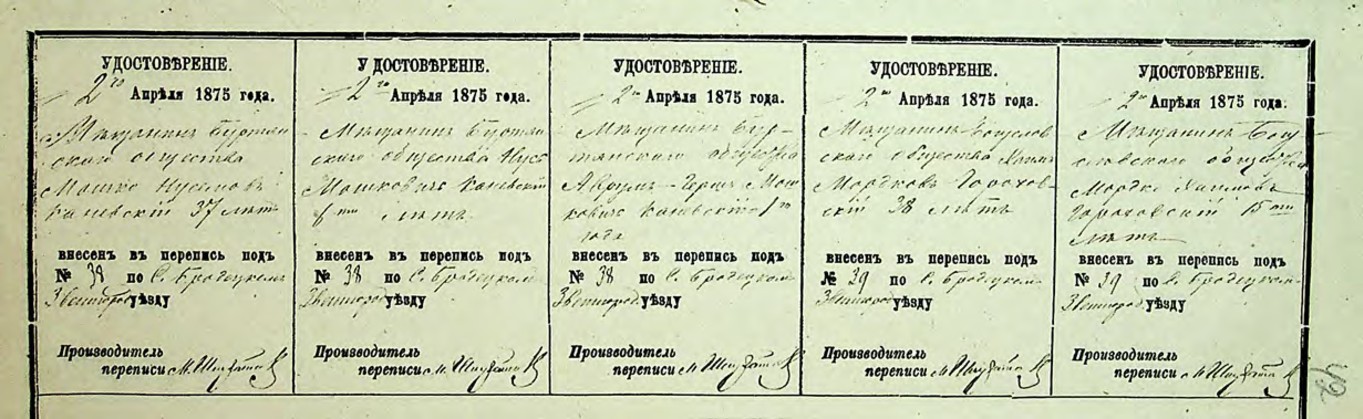 УДОСТОВѢРЕНІЕ.
2го Апрѣля 1875 года.
Мѣщанинъ Буртян
скаго общества
Мошко Нусимовъ
Каневскій 37 лѣтъ
внесенъ въ перепись подъ
№ 38 по С. Бродецкомъ
Звенигород уѣзду
Производитель
переписи М.
УДОСТОВѢРЕНІЕ.
2го Апрѣля 1875 года.
Мѣщанинъ Буртян
скаго общества
Мошковичъ Каневскій
лѣтъ
внесенъ въ перепись подъ
№ 38 по С. Бродецком
Звенигород уѣзду
Производитель
переписи М.
УДОСТОВѢРЕНІЕ.
2го Апрѣля 1875 года.
Мѣщанинъ Бур-
тянскаго общества
Аврумъ-Гершъ Мош
ковичъ Каневскій 1го
года
внесенъ въ перепись подъ
№ 38 по С. Бродецком
Звенигород. уѣзду
Производитель
переписи М.
УДОСТОВѢРЕНІЕ.
2го Апрѣля 1875 года.
Мѣщанинъ Богуслов
скаго общества Хаимъ
Мордковъ Горохов
скій 38 лѣтъ
внесенъ въ перепись подъ
№ 39 по С. Бродецком
Звенигород уѣзду
Производитель
переписи М.
УДОСТОВѢРЕНІЕ.
2го Апрѣля 1875 года.
Мѣщанинъ Богу-
словскаго общества
Мордко Хаимовъ
Гороховскій 15ти
лѣтъ
внесенъ въ перепись подъ
№ 39 по С. Бродецком
Звенигород. уѣзду
Производитель
переписи М.